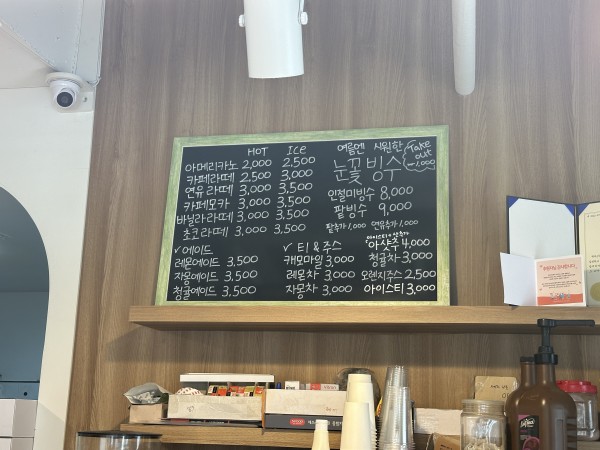 HOT ICE
아메리카노 2,000 2,500
카페라떼 2,500 3,000
연유라떼 3,000 3,500
카페모카 3,000 3,500
바닐라라떼 3,000 3,500
초코라떼 3,000 3,500
✓에이드
레몬에이드 3,500
자몽에이드 3,500
청귤에이드 3,500
✓ 티&주스
캐모마일 3,000
레몬차 3,000
자몽차 3,000
여름엔 시원한
눈꽃빙수
Take out -1,000
인절미빙수 8,000
팥빙수 9,000
팥추가 1,000 연유추가 1,000
아이스티+샷추가
아샷추 4,000
청귤차 3,000
오렌지주스 2,500
아이스티 3,000